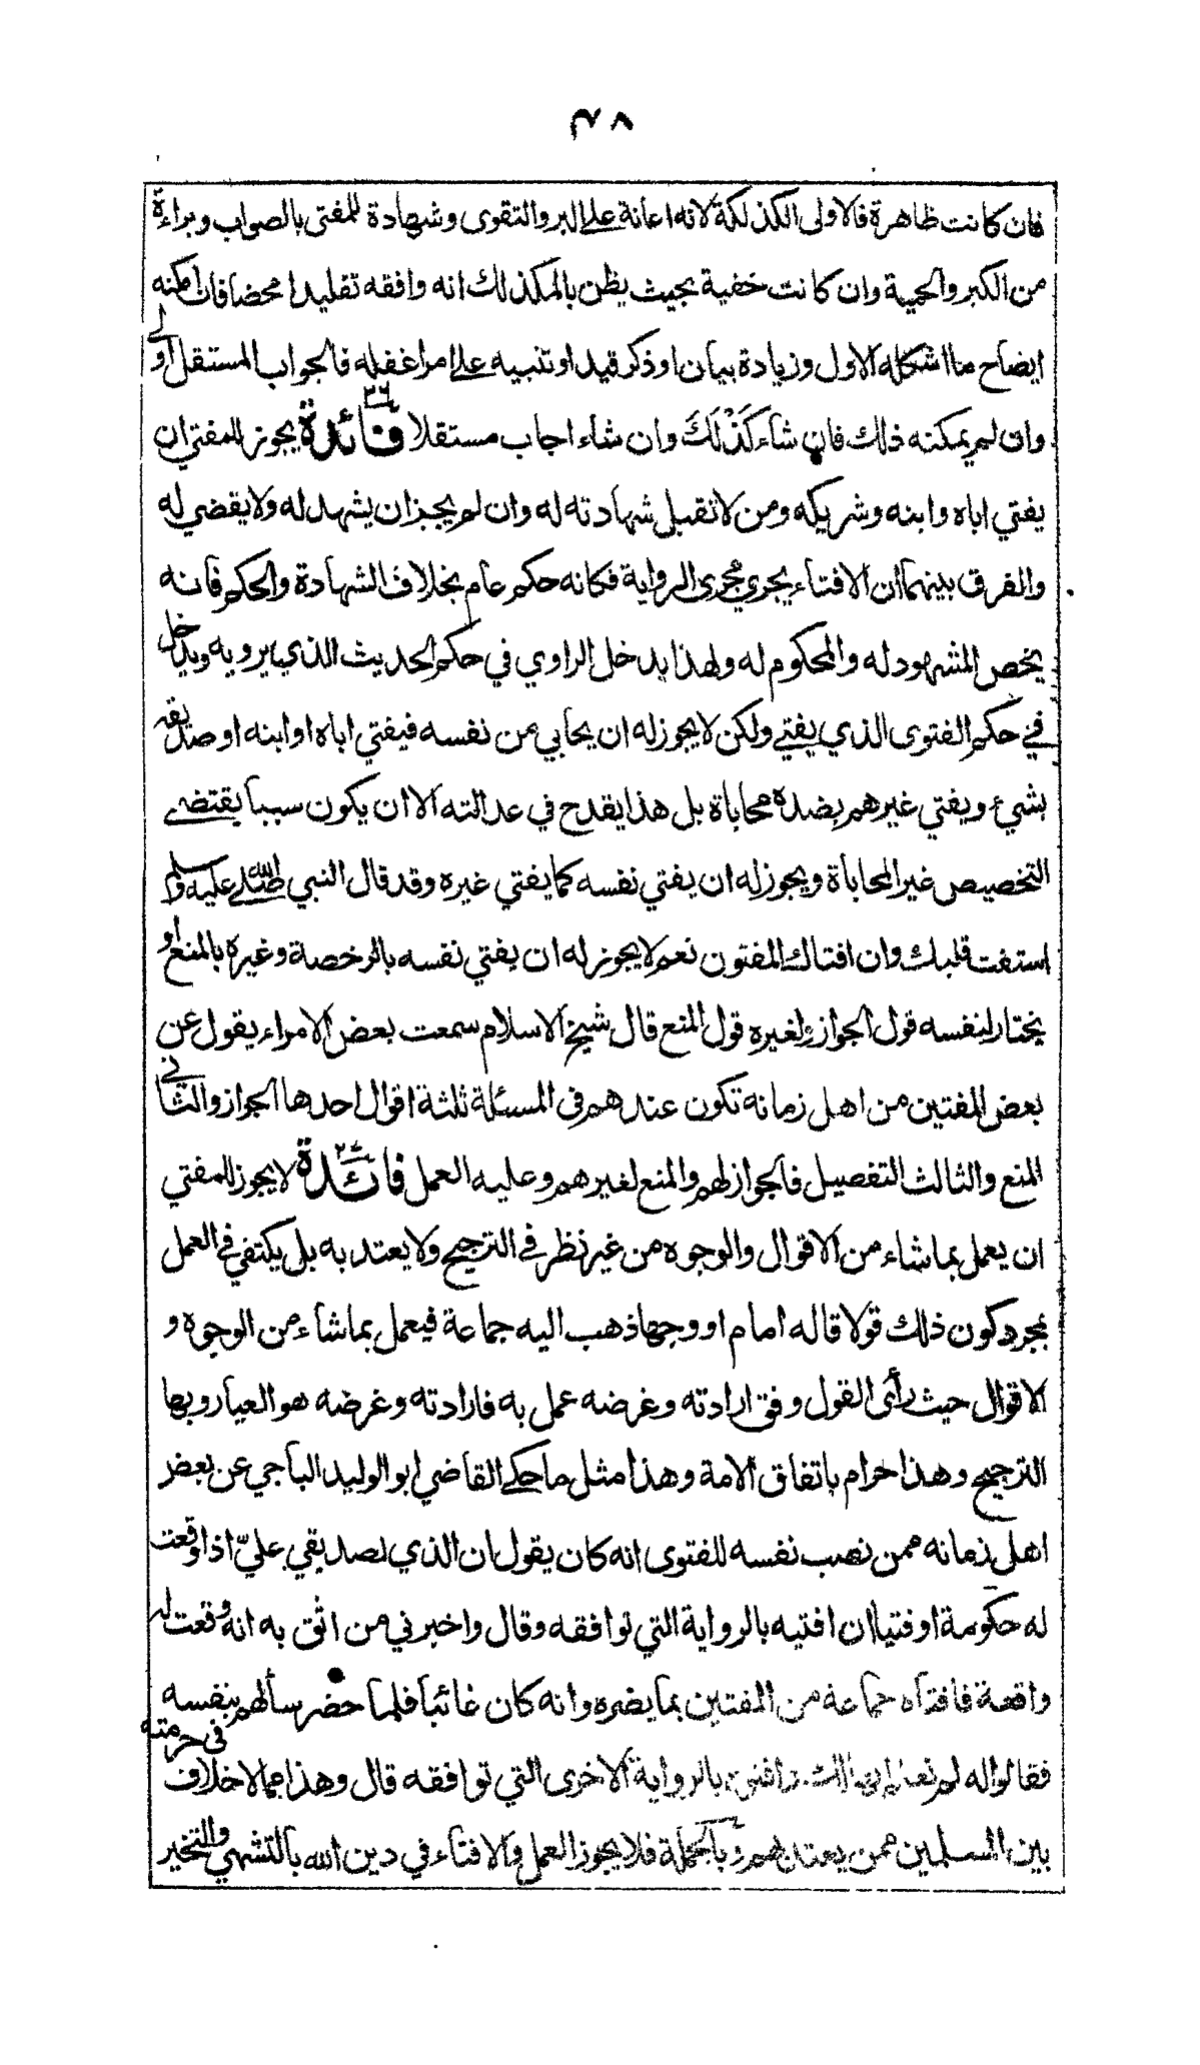 ٣٨
فان كانت ظاهرة فالاولى الكذلكة لانه اعانة على البر والتقوى وشهادة للمفتى بالصواب وبراءة
من الكبر والحمية وان كانت خفية بحيث يظن بالمكذلك انه وافقه تقليدا محضا فان امكنه
ايضاح ما اشكله الاول وزيادة بيان او ذكر قيد او تنبيه على امر اغفله فالجواب المستقل اولى
وان لم يمكنه ذلك فان شاء كَذْلَكَ وان شاء اجاب مستقلا فائدة ٣٦ يجوز للمفتي ان
يفتي اباه وابنه وشريكه ومن لا تقبل شهادته له وان لم يجز ان يشهد له ولا يقضي له
والفرق بينهما ان الافتاء يجري مجرى الرواية فكانه حكم عام بخلاف الشهادة والحكم فانه
يخص المشهود له والمحكوم له ولهذا يدخل الراوي في حكم الحديث الذي يرويه ويدخل
في حكم الفتوى الذي يفتي ولكن لا يجوز له ان يحابي من نفسه فيفتي اباه او ابنه او صديقه
بشيء ويفتي غيرهم بضده محاباة بل هذا يقدح في عدالته الا ان يكون سببا يقتضي
التخصيص غير المحاباة ويجوز له ان يفتي نفسه كما يفتي غيره وقد قال النبي صلى الله عليه وسلم
استفت قلبك وان افتاك المفتون نعم لا يجوز له ان يفتي نفسه بالرخصة وغيره بالمنع او
يختار لنفسه قول الجواز ولغيره قول المنع قال شيخ الاسلام سمعت بعض الامراء يقول عن
بعض المفتين من اهل زمانه تكون عندهم فى المسئلة ثلثة اقوال احدها الجواز والثانى
المنع والثالث التفصيل فالجواز لهم والمنع لغيرهم وعليه العمل فائدة ٣٧ لا يجوز للمفتي
ان يعمل بما شاء من الاقوال والوجوه من غير نظر في الترجيح ولا يعتد به بل يكتفي في العمل
بمجرد كون ذلك قولا قاله امام او وجها ذهب اليه جماعة فيعمل بما شاء من الوجوه و
الاقوال حيث رأى القول وفق ارادته وغرضه عمل به فارادته وغرضه هو العيار وبها
الترجيح وهذا حرام باتفاق الامة وهذا مثل ما حكى القاضي ابو الوليد الباجي عن بعض
اهل زمانه ممن نصب نفسه للفتوى انه كان يقول ان الذي لصديقي عليّ اذا وقعت
له حكومة او فتيا ان افتيه بالرواية التي توافقه وقال واخبرني من اثق به انه وقعت له
واقعة فافتاه جماعة من المفتين بما يضره وانه كان غائبا فلما حضر سألهم بنفسه
فقالوا له لم نعلم بالرواية الاخرى التي توافقه قال وهذا مما لا خلاف فى حرمته
بين المسلمين ممن يعتد بهم وبالجملة فلا يجوز العمل والافتاء في دين الله بالتشهي والتخير